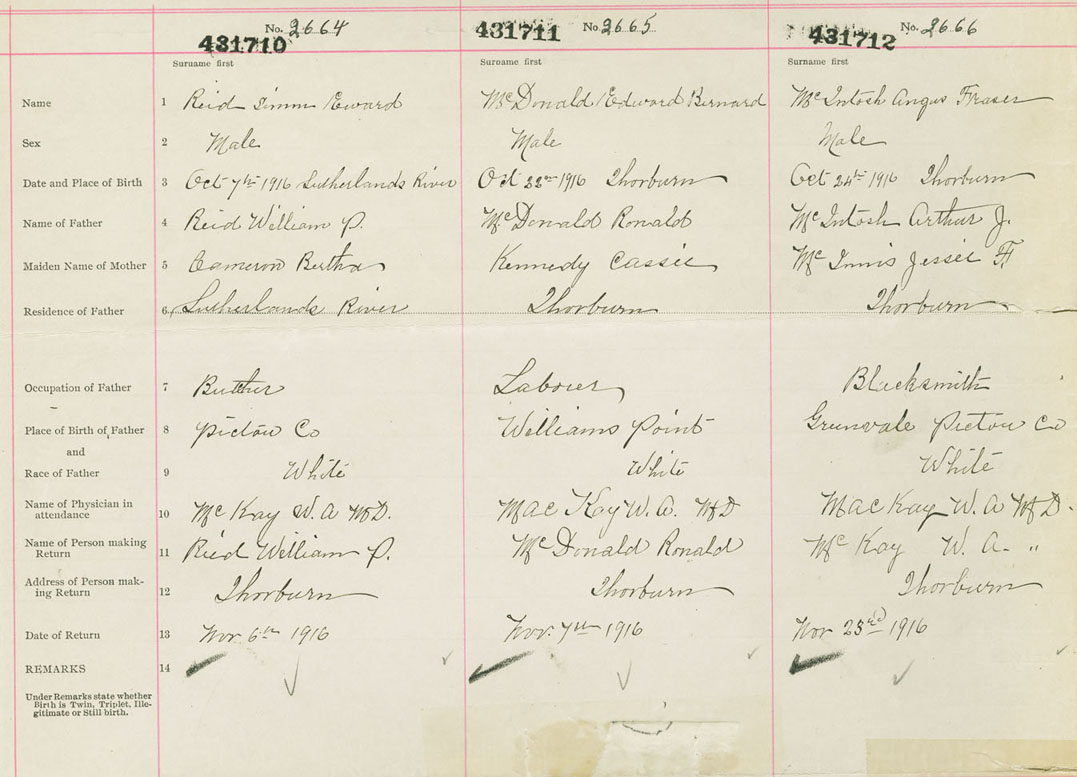 No. 2664 No. 2665 No. 2666
431710 431711 431712
Surname first Surname first Surname first
Name 1 Reid Simm Eward McDonald Edward Bernard McIntosh Angus Fraser
Sex 2 Male Male Male
Date and Place of Birth 3 Oct 7th 1916 Sutherlands River Oct 22nd 1916 Thorburn Oct 24th 1916 Thorburn
Name of Father 4 Reid William P. McDonald Ronald McIntosh Arthur J.
Maiden Name of Mother 5 Cameron Bertha Kennedy Cassie McInnis Jessie F
Residence of Father 6 Sutherlands River Thorburn Thorburn
Occupation of Father 7 Butcher Laborer Blacksmith
Place of Birth of Father 8 Pictou Co Williams Point Greenvale Pictou Co
and
Race of Father 9 White White White
Name of Physician in
attendance 10 McKay W. A MD. MacKay W. A. MD MacKay W. A MD.
Name of Person making
Return 11 Ried William P. McDonald Ronald McKay W. A. "
Address of Person mak-
ing Return 12 Thorburn Thorburn Thorburn
Date of Return 13 Nov 6th 1916 Nov. 7th 1916 Nov 23rd 1916
REMARKS 14
Under Remarks state whether
Birth is Twin, Triplet, Ille-
gitimate or Still-birth.